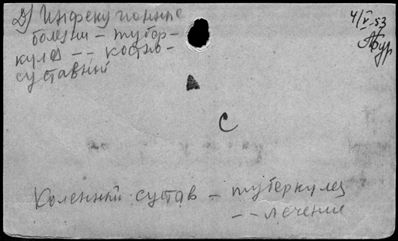 2) Инфекционные
болезни – тубер-
кулез -- костно-
суставный
4/V-53
С
Коленный сустав – туберкулез
-- лечение